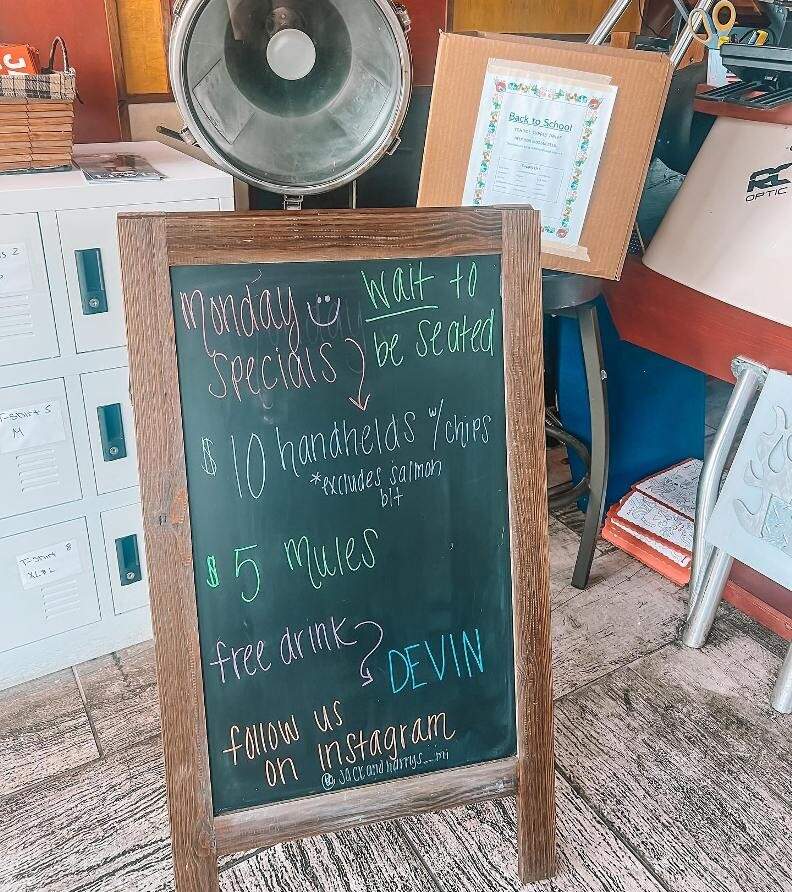 monday
specials
wait to
be seated
$10 handhelds w/chips
*excludes salmon
blt
$5 mules
free drink
DEVIN
follow us
on instagram
@jackandharrys__mi
Back to School
OPTIC
T-Shirt S
M